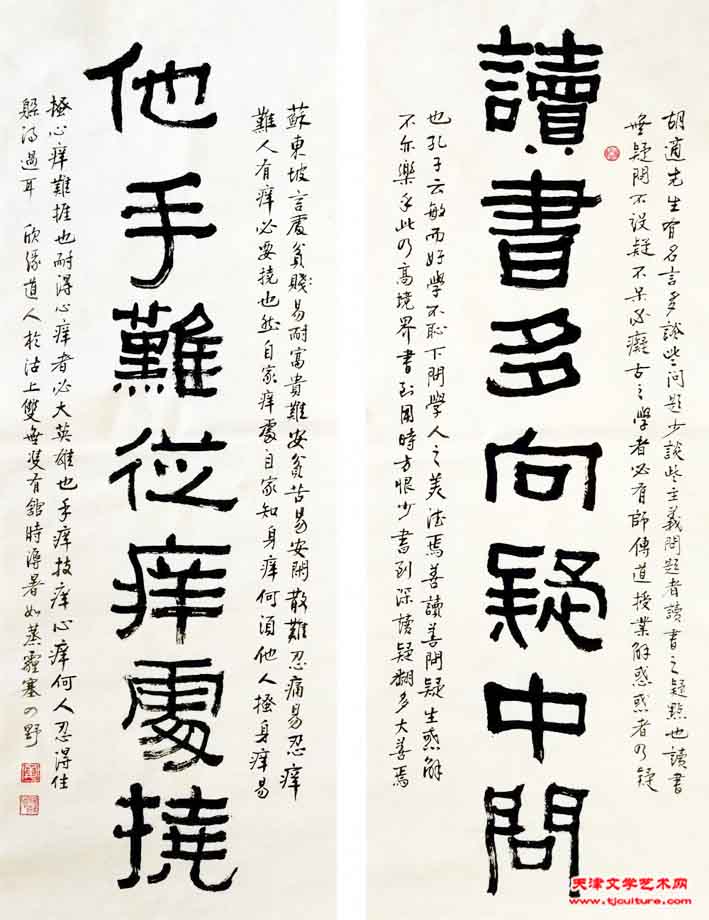 胡適先生有名言多談些问題少談些主義問題者讀書之疑點也讀書
無疑問不设疑不呆必癡古之學者必有師傳道授業解惑惑者乃疑
讀書多向疑中問
也孔子云敏而好學不恥下問學人之美德焉善讀善問疑生惑解
不亦樂乎此乃高境界書到用時方恨少書到深讀疑翻多大善焉
蘇東坡言處貧賤易耐富貴難安貧苦易安閑散難忍痛易忍痒
難人有痒必要撓也然自家痒處自家知身痒何須他人搔身痒易
他手難從痒處撓
搔心痒難捱也耐得心痒者必大英雄也手痒技痒心痒何人忍得住
躲得過耳 欣緣道人於沽上雙無雙有館時溽暑如蒸霾塞四野
天津文学艺术网
www.tjculture.com